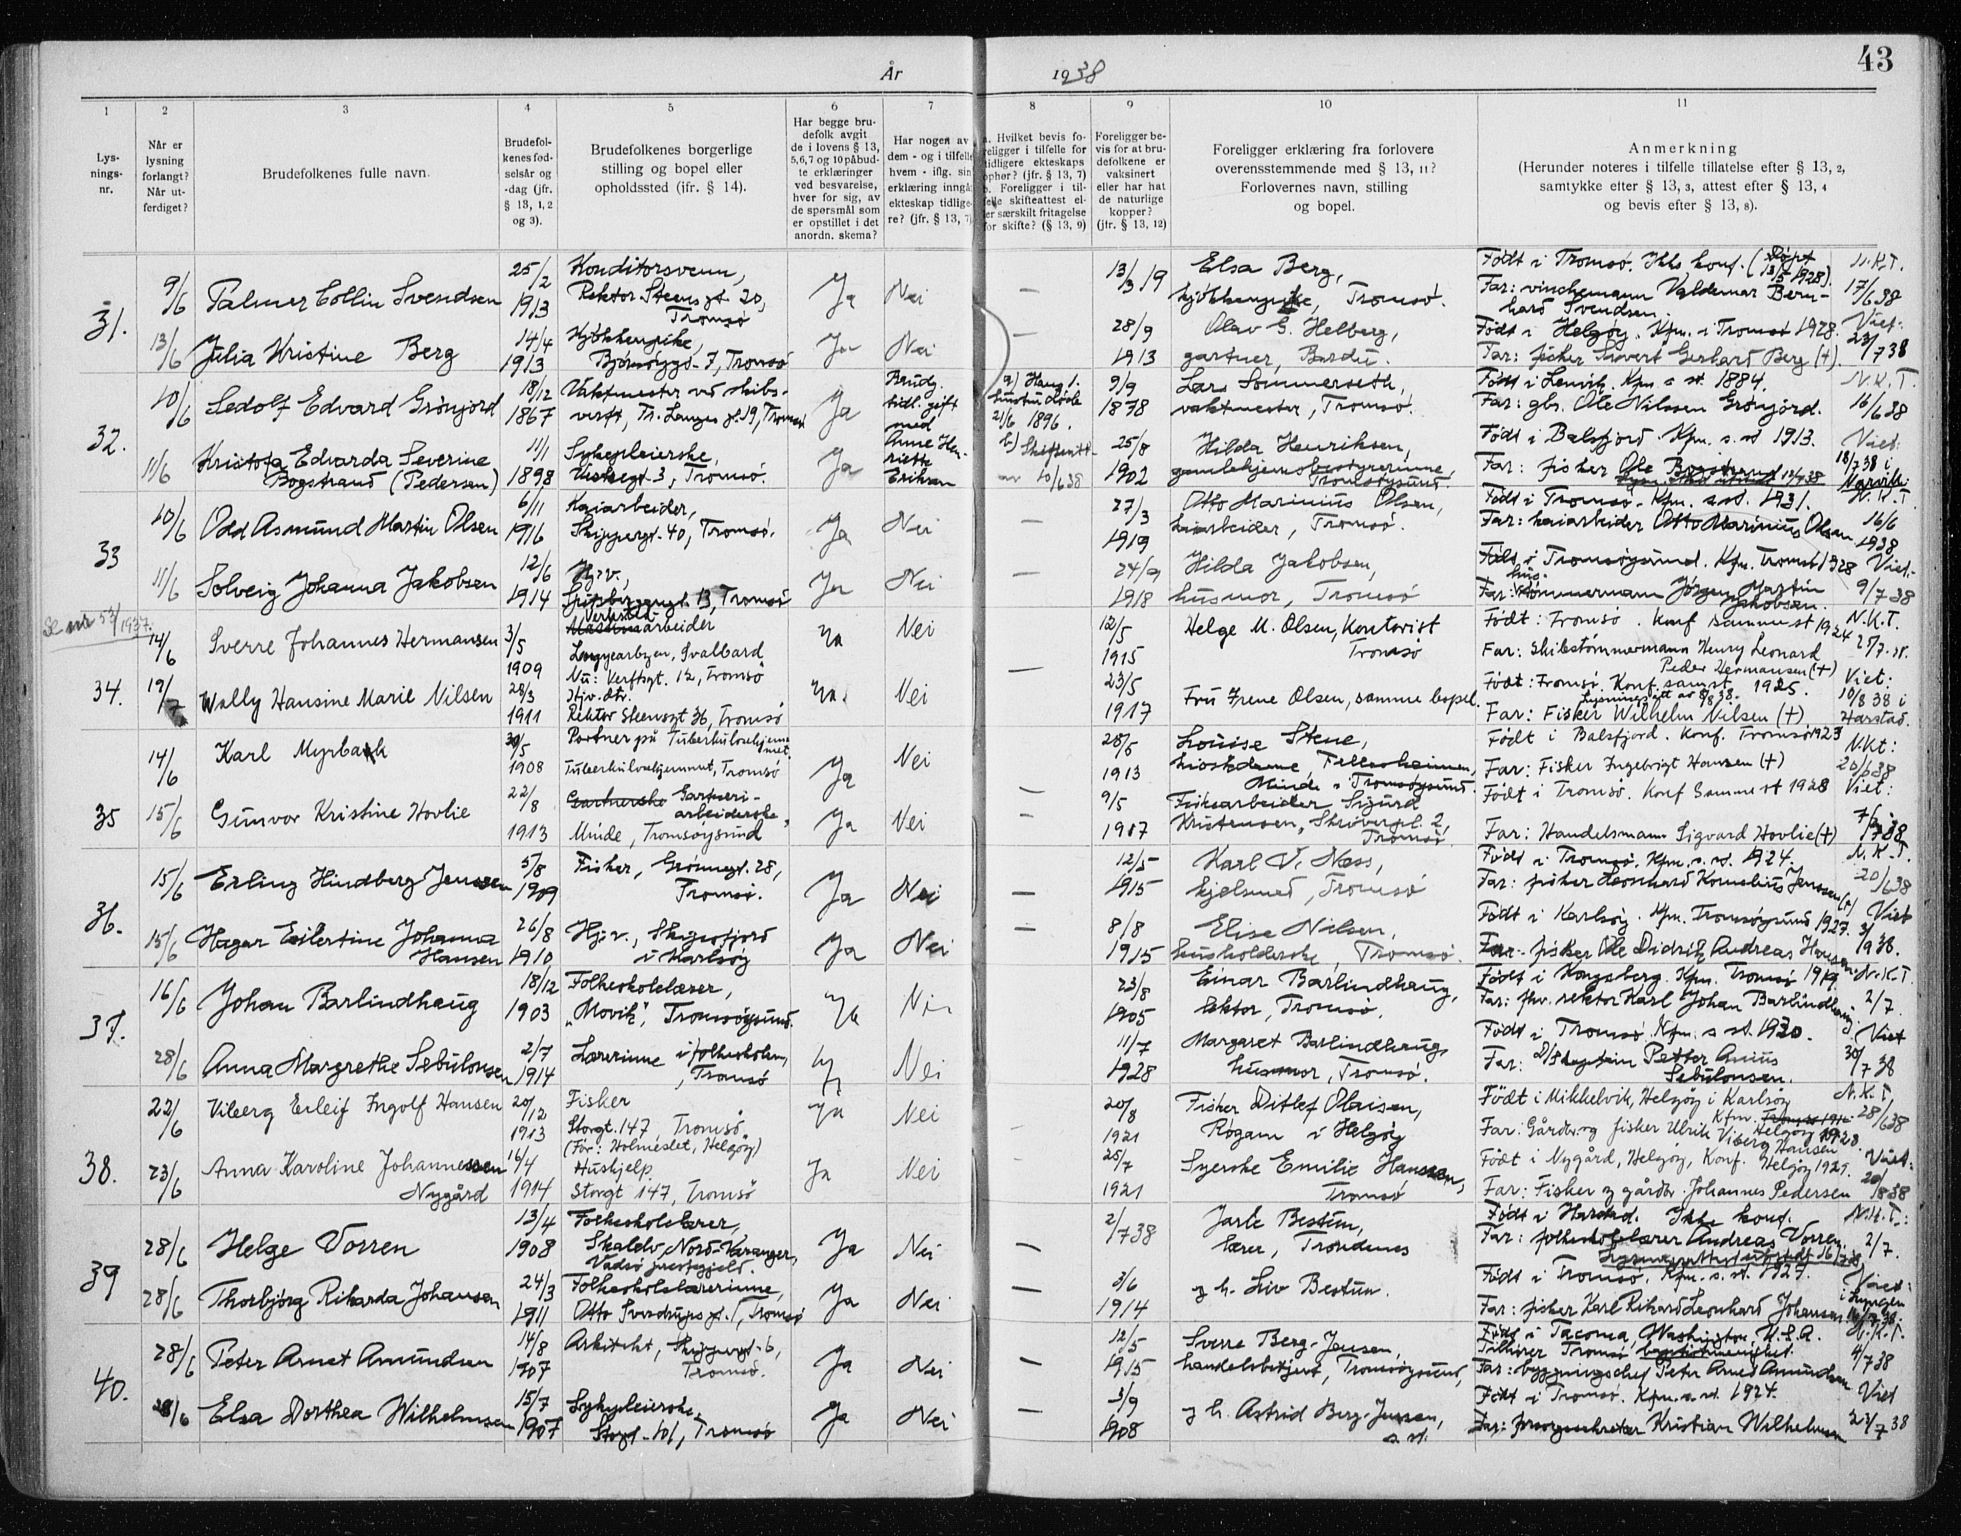 År 1938
43
1 2 3 4 5 6 7 8 9 10 11
Lysningsnr.
Når er lysning forlangt? Når utferdiget?
Brudefolkenes fulle navn.
Brudefolkenes fødselsår og -dag (jfr. § 13, 1, 2 og 3).
Brudefolkenes borgerlige stilling og bopel eller opholdssted (jfr. § 14).
Har begge brudefolk avgit de i lovens § 13, 5,6,7 og 10 påbudte erklæringer ved besvarelse, hver for sig, av de spørsmål som er opstillet i det anordn. skema?
Har nogen av dem - og i tilfelle hvem - iflg. sin erklæring inngå ekteskap tidligere? (jfr. § 13, 7)
a. Hvilket bevis foreligger i tilfelle for tidligere ekteskaps ophør? (jfr. § 13, 7) b. Foreligger i tilfelle skifteattest eller særskilt fritagelse for skifte? (§ 13, 9)
Foreligger bevis for at brudefolkene er vaksinert eller har hat de naturlige kopper? (jfr. § 13, 12)
Foreligger erklæring fra forlovere overensstemmende med § 13, 11? Forlovernes navn, stilling og bopel.
Anmerkning
(Herunder noteres i tilfelle tillatelse efter § 13, 2, samtykke efter § 13, 3, attest efter § 13, 4 og bevis efter § 13, 8).
31.
9/6 Palmer Collin Svendsen 25/2 1913 Konditorsvenn, Rektor Steensgt. 20, Tromsø Ja Nei — 13/3 19 Elsa Berg, kjøkkenpike, Tromsø. Født i Tromsø. Ikke konf. (Døpt 13/5 1928). Far: vinschemann Valdemar Bernhard Svendsen. N.K.T. 17/6 38
13/6 Julia Kristine Berg 14/4 1913 Kjøkkenpike, 7, Tromsø Ja Nei — 28/9 1913 Olav G. Helberg, gartner, Bardu. Født i Helgøy. Kfm. i Tromsø 1928. Far: fisker Gerhard Berg (+). Viet: 23/7 38
32.
10/6 Sedolf Edvard Grønjord 18/12 1867 Vaktmester ved skibsverft, Tr. Langes gt. 19, Tromsø Ja Brudg. tidl. gift med Anne Henriette Eriksen a) 21/6 1896. 9/9 1878 Lars Sommerseth, vaktmester, Tromsø. Født i Lenvik. Kfm. s. st. 1884. Far: gbr. Ole Nilssen Grønjord. N.K.T. 16/6 38
11/6 Kristofa Edvarda Severine Bogstrand (Pedersen) 11/1 1898 Sykepleierske, 3, Tromsø. Ja b) Skifteatt. av 10/6 38 25/8 1902 Hilda Henriksen, gamlehjemsbestyrerinne, Tromsøysund. Født i Balsfjord. Kfm. s. st 1913. Far: fisker Ole Viet: 18/7 38 i Narvik.
33
10/6 Odd Asmund Martin Olsen 6/11 1916 Kaiarbeider, Skippergt. 40, Tromsø. Ja Nei — 27/3 1919 Otto Marinius Olsen, kaiarbeider, Tromsø. Født i Tromsø. Kfm. s. st. 1931. Far: kaiarbeider Otto Marinius Olsen N.K.T 16/6 1938
11/6 Solveig Johanna Jakobsen 12/6 1914 Hjv., Spitsbergengt. 13, Tromsø Ja Nei — 24/9 1918 Hilda Jakobsen, husmor, Tromsø Født i Tromsøysund. Kfm. Tromsø 1928 Far: Jørgen Martin Jakobsen. Viet. 9/7 38
Se nr 53/1937.
34.
14/6 Sverre Johannes Hermansen 3/5 1909 arbeider Longyearbyen, Svalbard Nu: Verftsgt. 12, Tromsø Ja Nei — 12/5 1915 Helge M. Olsen, Kontorist Tromsø Født: Tromsø. Konf samme st 1924 Far: Skibstømmermann Henry Leonard Peder Hermansen (+) N.K.T. 25/7.38.
19/7 Wally Hansine Marie Nilsen 28/3 1911 Hjv. dtr. Rektor Steensgt 36, Tromsø Ja. Nei 23/5 1917 Fru Irene Olsen, samme bopel. Født: Tromsø. Konf. sam. st. 1925. Far: Fisker Wilhelm Nilsen (+) Viet: 10/8 38 i Harstad.
35
14/6 Karl Myrbakk 30/5 1908 Portner på Tuberkulosehjemmet. Tuberkulosehjemmet, Tromsø Ja Nei — 28/5 1913 Louise Stene, Minde i Tromsøysund. Født i Balsfjord. Konf. Tromsø 1923 Far: Fisker Ingebrigt Hansen (+) N.K.t: 20/6 38
15/6 Gunvor Kristine Hovlie 22/8 1913 Gartneriarbeiderske, Minde, Tromsøysund Ja Nei — 9/5 1907 Sigurd Kristensen, 2, Tromsø Født i Tromsø. Konf Samme st 1928 Far: Handelsmann Sigvard Hovlie (+) Viet: 7/ 38
36.
15/6 Erling Hindberg Jenssen 5/8 1909 Fisker, Grønnegt. 28, Tromsø. Ja Nei — 12/5 1915 Karl V. Næss, kjelsmed, Tromsø Født i Tromsø. Kfm. s. st. 1924. Far: fisker Leonhard Kornelius Jenssen (+) N.K.T. 20/6 38
15/6 Hagar Eilertine Johanna Hansen 26/8 1910 Hjv., i Karlsøy Ja Nei — 8/8 1915 Elise Nilsen, husholderske, Tromsø. Født i Karlsøy. Kfm. Tromsøysund 1927. Far: fisker Ole Didrik Andreas Hansen. Viet 38.
37.
16/6 Johan Barlindhaug 18/12 1903 Folkeskolelærer, "Movik", Tromsøysund. Ja Nei 23/8 1905 Einar Barlindhaug, lektor, Tromsø. Født i Kongsberg. Kfm. Tromsø 1919. Far: fhv. rektor Karl Johan Barlindhaug N.K.T. 2/7.
28/6 Anna Margrethe Sebulonsen 2/7 1914 Lærerinne i folkeskolen, Tromsø Ja Nei 11/7 1928 Margaret Barlindhaug, husmor, Tromsø. Født i Tromsø. Kfm. s st. 1930. Far: Petter Anius Sebulonsen. Viet 30/7 38
38.
22/6 Viberg Erleif Ingolf Hansen 20/12 1913 Fisker Storgt. 147, Tromsø (Før: Holmeslet, Helgøy) Ja Nei 20/8 1921 Fisker Ditlef Olaisen, Rogam i Helgøy Født i Mikkelvik, Helgøy i Karlsøy Kfm. Helgøy 1928. Far: Gårdbr. og fisker Ulrik Viberg Hansen N.K.T. 28/6 38
23/6 Anna Karoline Johannessen Nygård 16/4 1914 Huskjelp Storgt 147, Tromsø Ja Nei 25/7 1921 Syerske Emilie Hanssen, Tromsø Født i Nygård, Helgøy, Konf. Helgøy 1929. Far: Fisker og gårdbr. Johannes Pedersen Viet: 20/8 38
39
28/6 Helge Vorren 13/4 1908 Folkeskolelærer, Nord-Varanger, Vadsø prestegjeld. Ja Nei — 2/7 38 Jarle Bestun, lærer, Trondenes Født i Harstad. Ikke konf. Far: folkeskolelærer Andreas Vorren N.K.T.: 2/7.
28/6 Thorbjørg Rikarda Johansen 24/3 1911 Folkeskolelærerinne, Otto Sverdrups gt. 1, Tromsø Ja Nei — 3/6 1914 Liv Bestun. Født i Tromsø. Kfm. s. st. 1927. Far: fisker Karl Rikard Leonhard Johansen Viet: i Lyngen
40.
28/6 Peter Arnet Amundsen 14/8 1907 Arkitekt, Skippergt. 6, Tromsø. Ja Nei — 12/5 1915 Sverre Berg-Jensen, handelsbetjent, Tromsøysund, Født i Tacoma, Washington, U.S.A. Tilhører Tromsø Far: bygningschef Peter Arnet Amundsen N.K.T. 4/7 38
28/6 Elsa Dorthea Wilhelmsen 15/7 1907 Sykepleierske, Storgt. 101, Tromsø Ja Nei — 3/9 1908 Astrid Berg-Jensen, s. st. Født i Tromsø. Kfm. s. st. 1924. Far: Kristian Wilhelmsen Viet 23/7 38